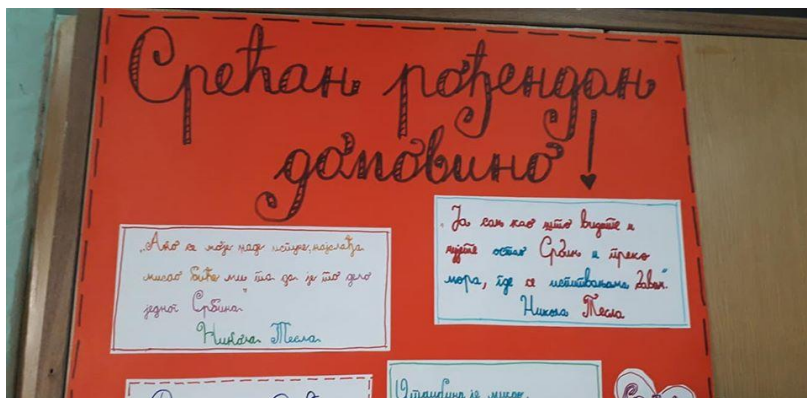 Срећан рођендан
домовино!
„Ако се моје наде испуне, најслађа
мисао биће ми та да је то дело
једног Србина"
Никола Тесла
„Ја сам као што видите и
чујете остао Србин и преко
мора, где се испитивањима бавим"
Никола Тесла
Отаџбина је